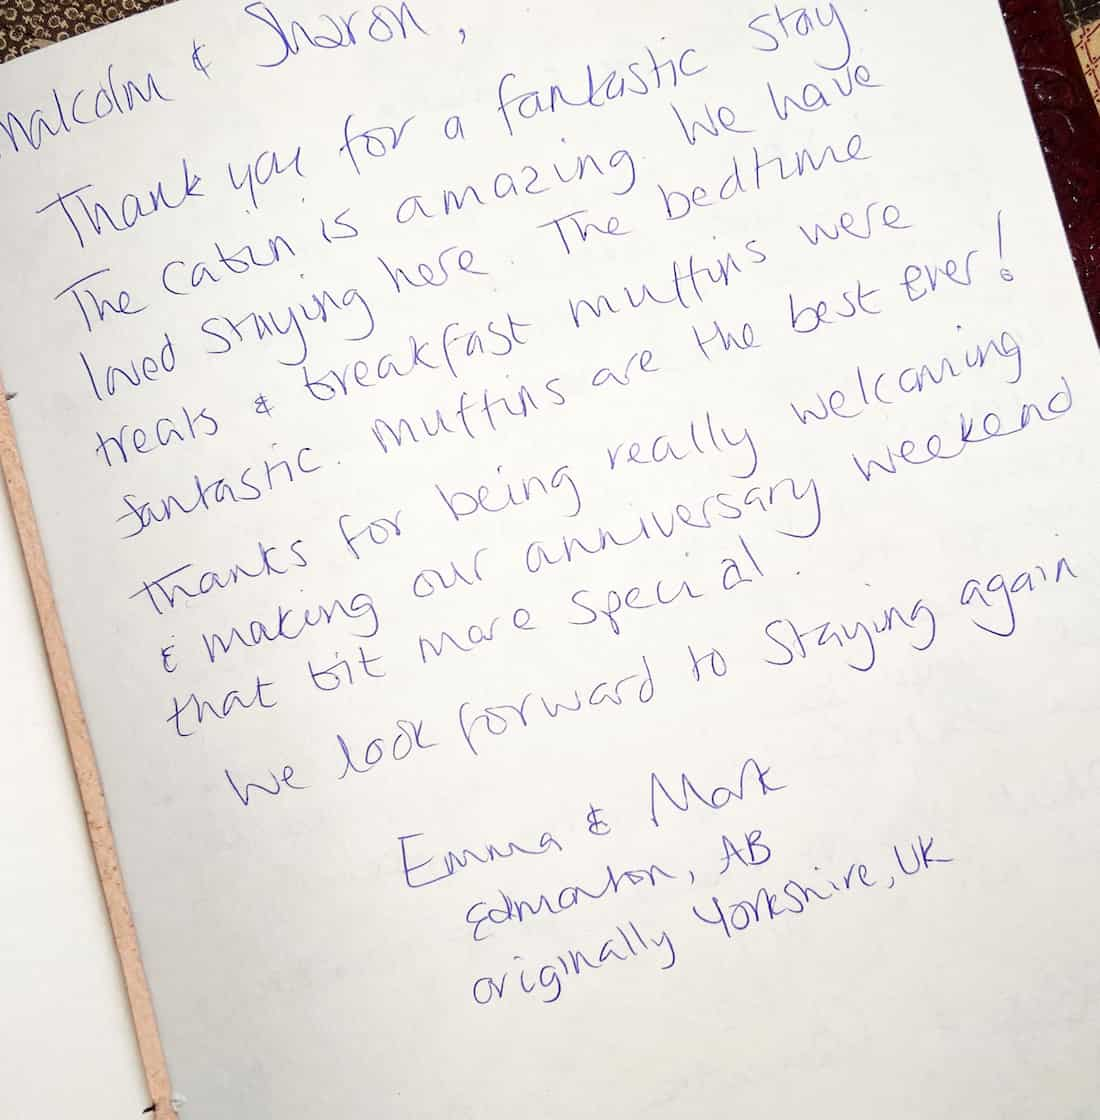 Malcolm & Sharon,
Thank you for a fantastic stay.
The cabin is amazing. We have
loved staying here. The bedtime
treats & breakfast muffins were
fantastic. Muffins are the best ever!
Thanks for being really welcoming
& making our anniversary weekend
that bit more special.
We look forward to staying again
Emma & Mark
Edmonton, AB
originally Yorkshire, UK